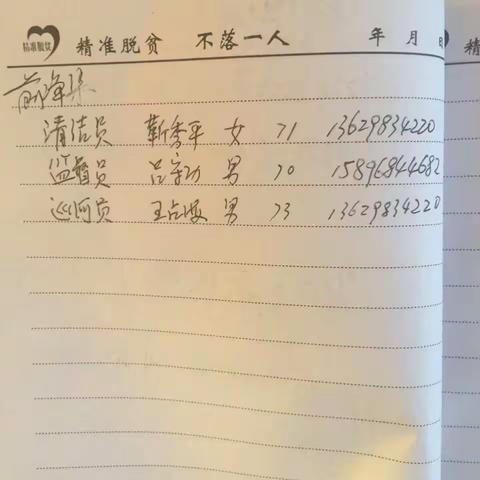 精准脱贫 精准脱贫 不落一人 年 月 日 精
前峰渠
清洁员 靳秀平 女 71 13629834220
监督员 吕宗功 男 70 15896844682
巡河员 王占海 男 73 13629834220